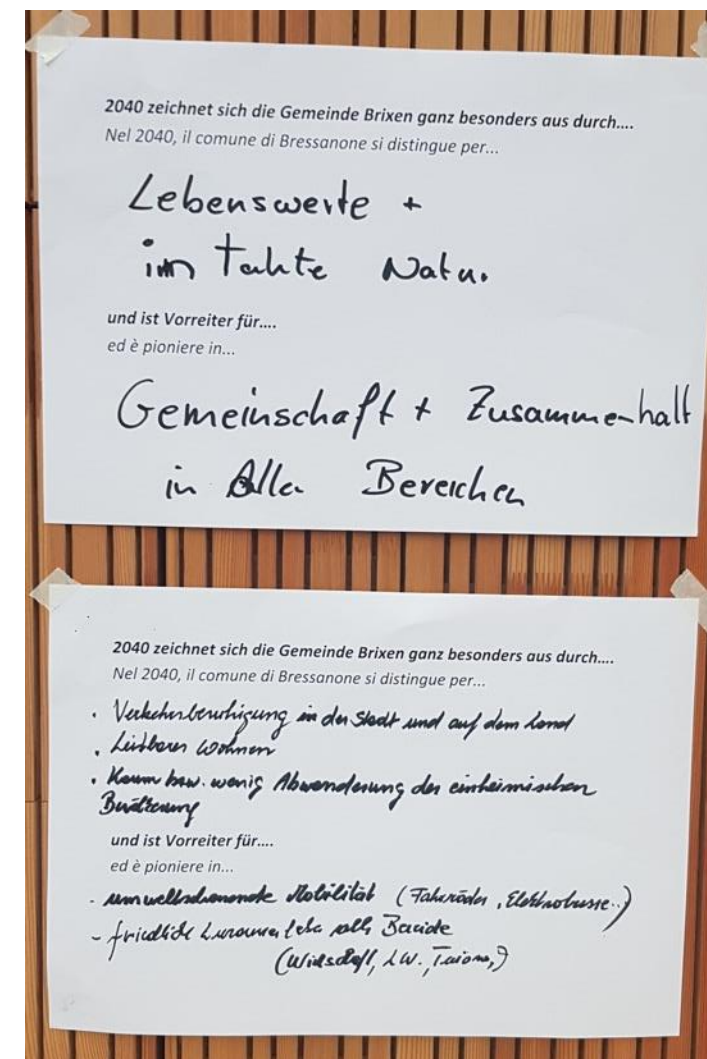 2040 zeichnet sich die Gemeinde Brixen ganz besonders aus durch....
Nel 2040, il comune di Bressanone si distingue per...
Lebenswerte +
im Takte Natur
und ist Vorreiter für....
ed è pioniere in...
Gemeinschaft + Zusammenhalt
in Allen Bereichen
2040 zeichnet sich die Gemeinde Brixen ganz besonders aus durch....
Nel 2040, il comune di Bressanone si distingue per...
. Verkehrsberuhigung in der Stadt und auf dem Land
. Leistbares Wohnen
. Kaum bzw. wenig Abwanderung der einheimischen
Bevölkerung
und ist Vorreiter für....
ed è pioniere in...
- umweltschonende Mobilität (Fahrräder, Elektrobusse..)
- friedliche alle Bereiche
(Wirtschaft, LW.,